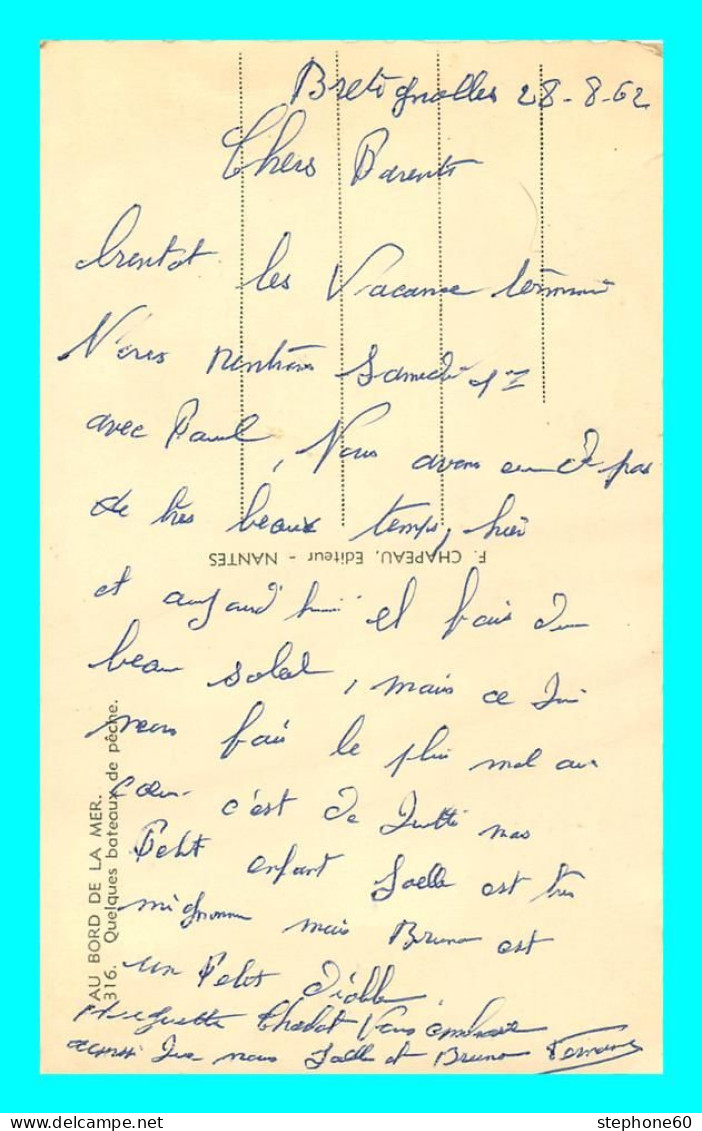 Bretignolles 28-8-62
Chers Parents
bientot les Vacance termine
Nous rentrons Samedi 1er
avec Paul, Nous avons eu pas
de tres beaux temps, hier
et aujourd'hui il fais du
beau soleil, mais ce qui
nous fais le plus mal au
coeur c'est de quitte nos
Petit enfant Joelle est tres
mignonne mais Bruno est
un Petit diable
Huguette Chabot Vous embrasse
aussi que nous Joelle et Bruno
F. CHAPEAU, Editeur - NANTES
AU BORD DE LA MER.
316. Quelques bateaux de pêche.
stephone60